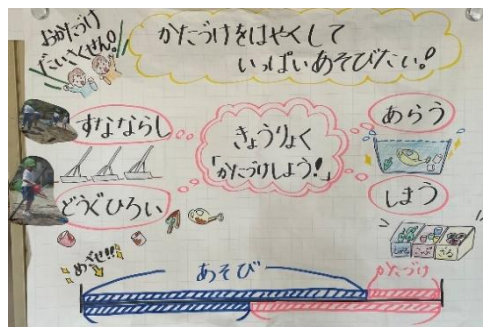 おかたづけ
だいさくせん!
かたづけをはやくして
いっぱいあそびたい!
すなならし
きょうりょく
「かたづけしよう!」
あらう
どうぐひろい
しまう
めざせ!!
あそび
かたづけ